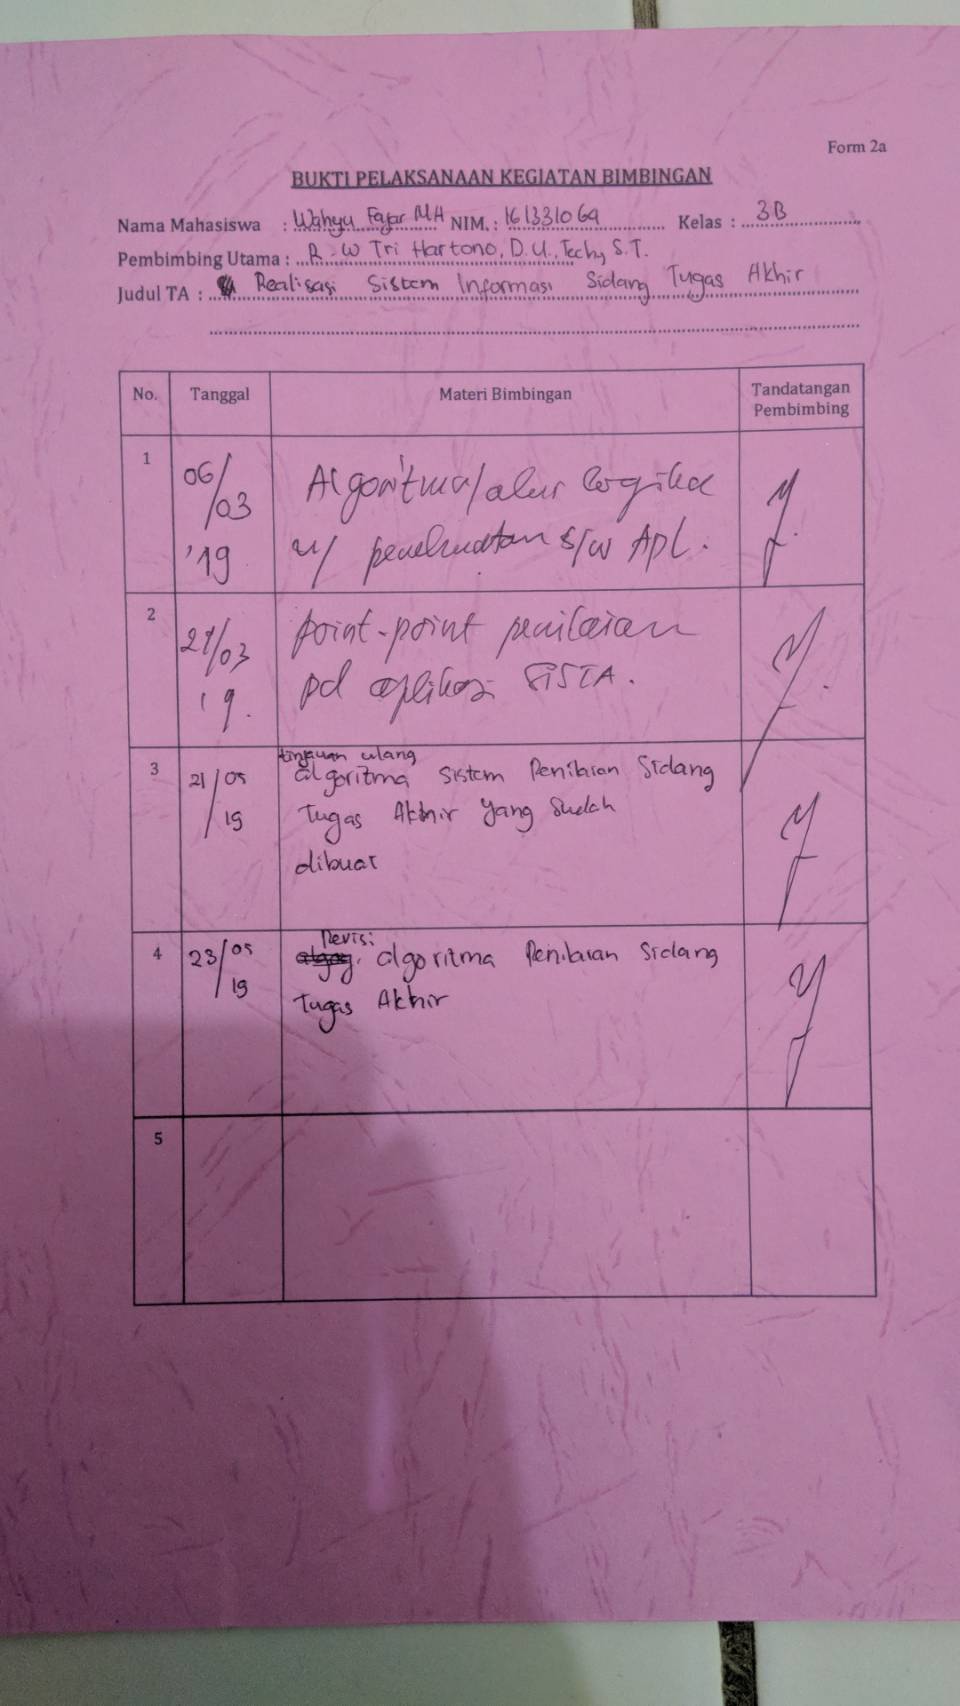 Form 2a
BUKTI PELAKSANAAN KEGIATAN BIMBINGAN
Nama Mahasiswa : Wahyu Fajar MH NIM. : 161331069 Kelas : 3B
Pembimbing Utama : R. W Tri Hartono, D.U., Tech, S.T.
Judul TA : Realisasi Sistem Informasi Sidang Tugas Akhir
No. Tanggal Materi Bimbingan Tandatangan
Pembimbing
1 06/03 '19 Algoritma/alur logika
u/ pembuatan s/w Apl.
2 21/03 '19. Point-point penilaian
pd aplikasi SISTA.
3 21/05/19 tinjauan ulang
algoritma Sistem Penilaian Sidang
Tugas Akhir yang sudah
dibuat
4 23/05/19 Revisi
algoritma Penilaian Sidang
Tugas Akhir
5